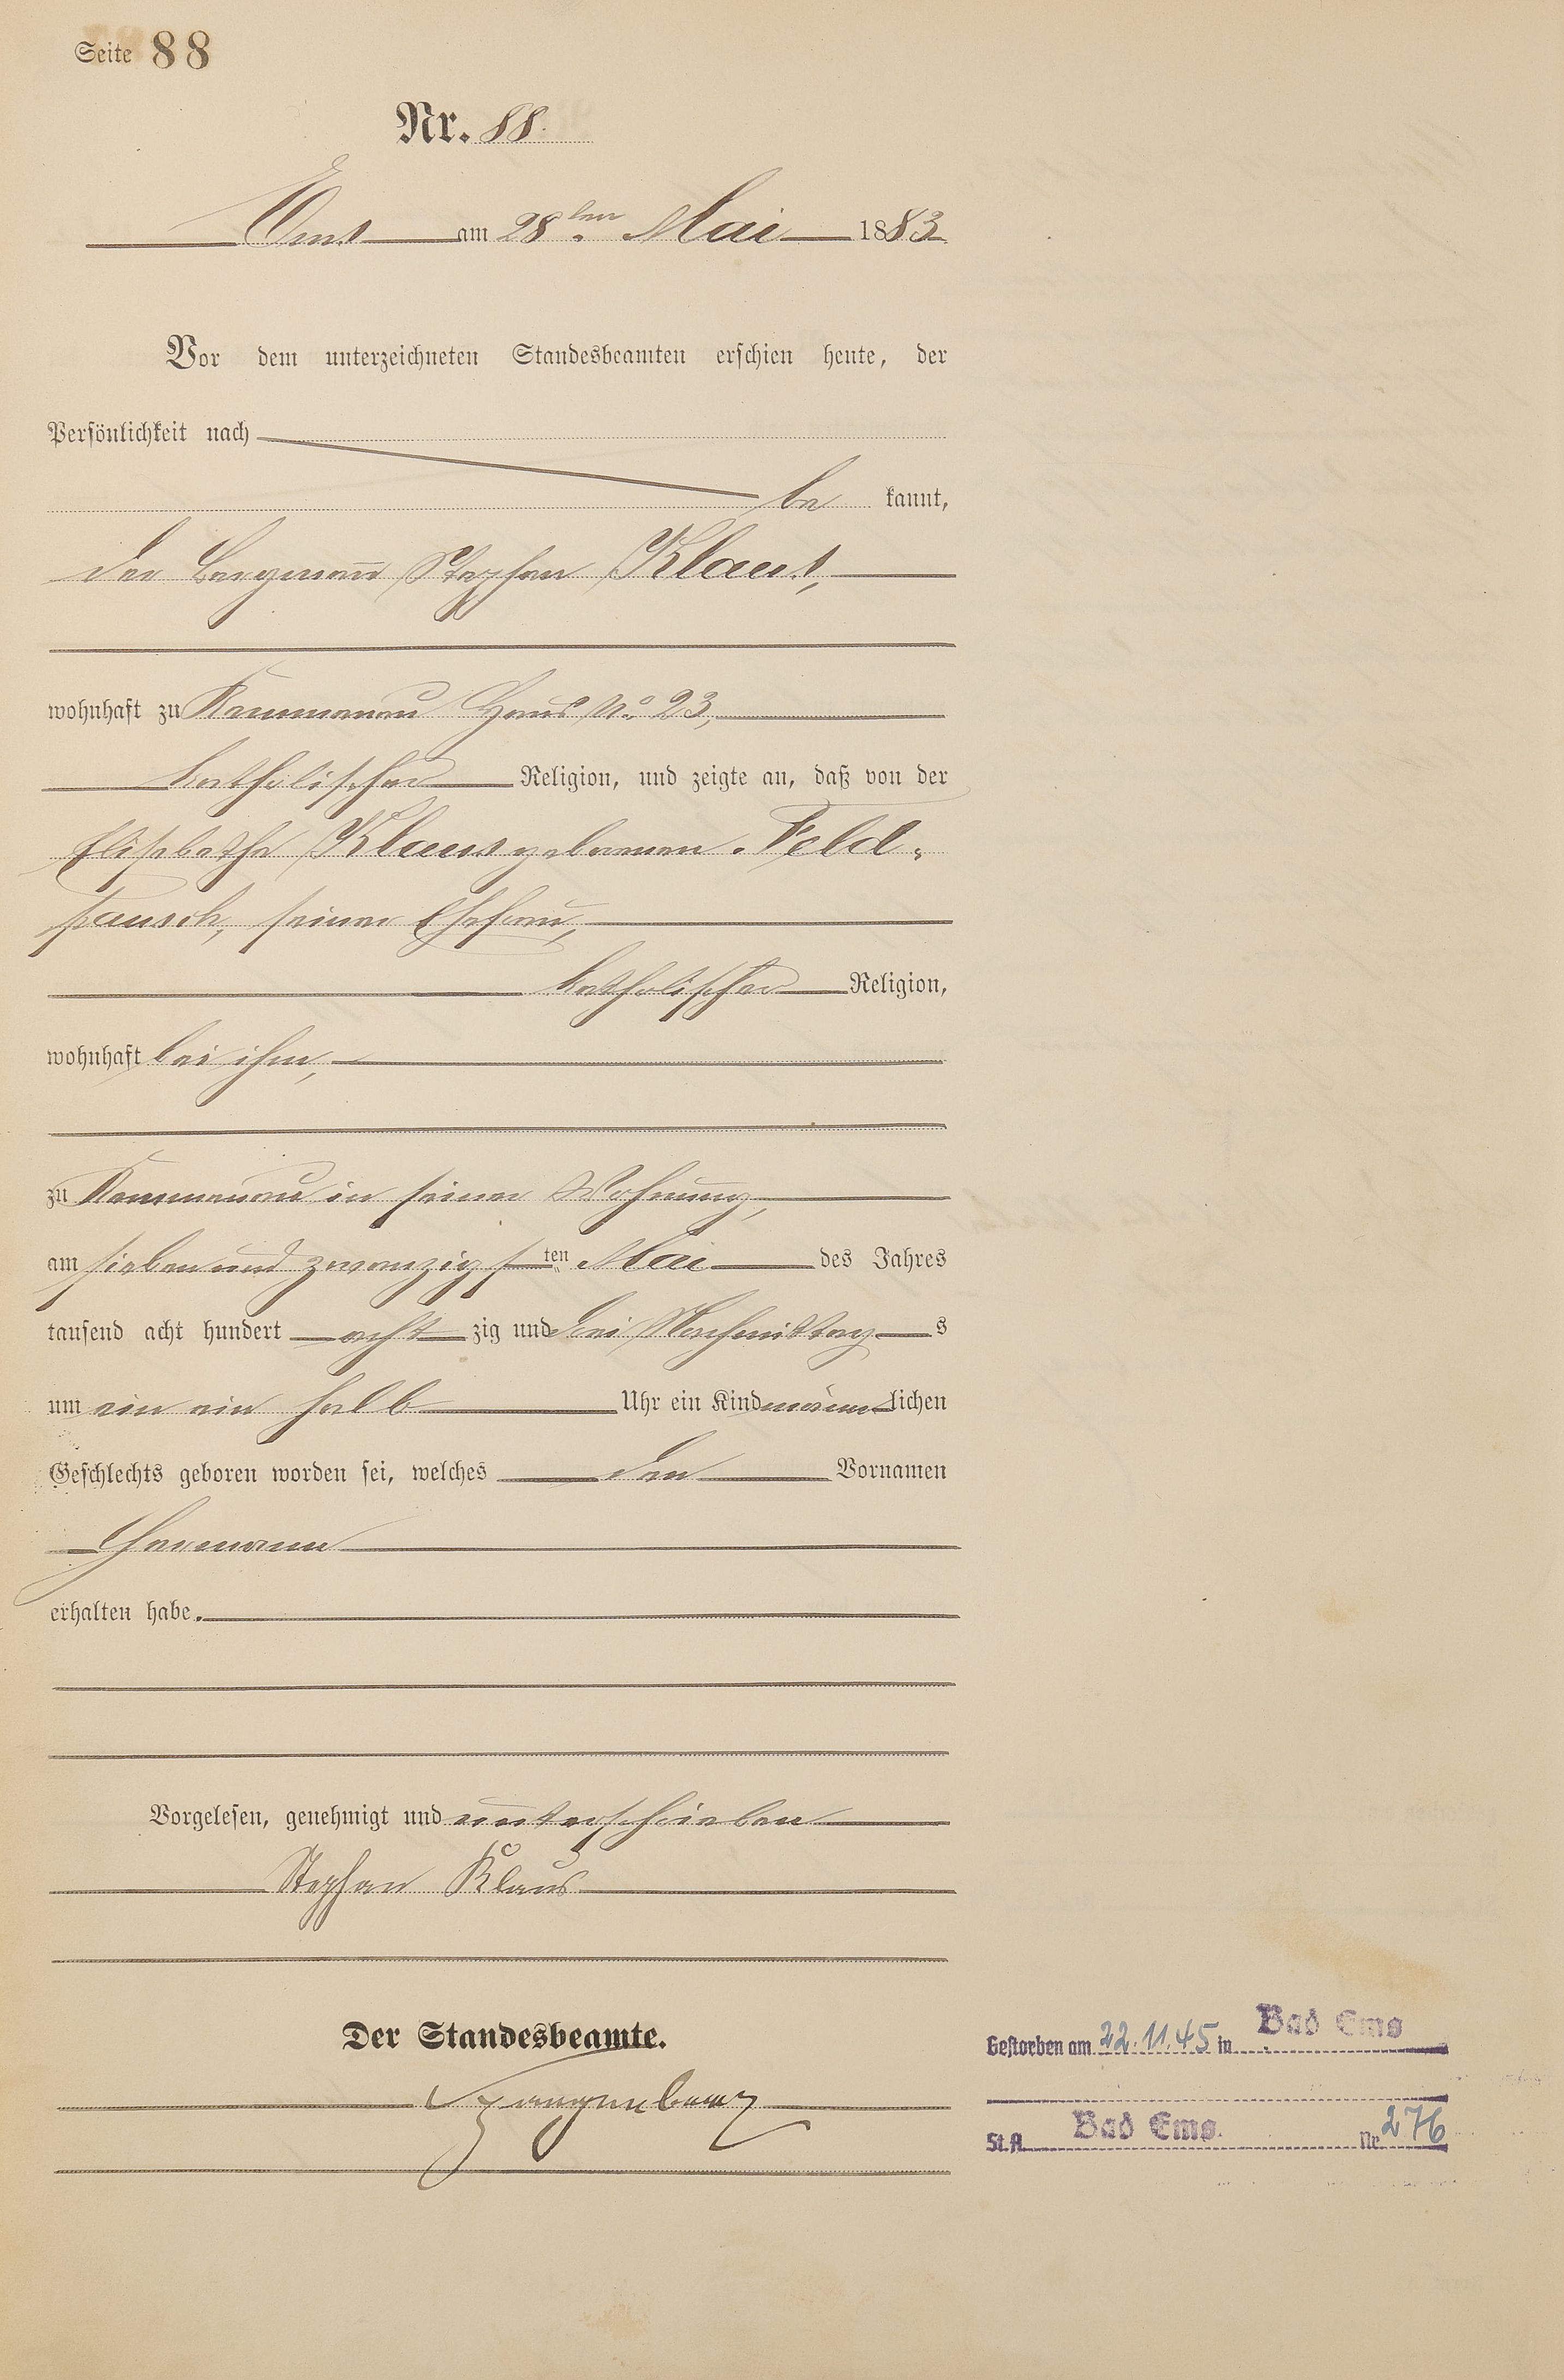 Seite 88
Nr. 88.
Ems am 28ten Mai 1883
Vor dem unterzeichneten Standesbeamten erschien heute, der
Persönlichkeit nach
be kannt,
der Bergmann Stephan Klaus,
wohnhaft zu Kemmenau Haus No. 23,
katholischer Religion, und zeigte an, daß von der
Elisabetha Klaus geborenen Feld-
pausch, seiner Ehefrau,
katholischer Religion,
wohnhaft bei ihm,
zu Kemmenau in seiner Wohnung,
am sieben und zwanzigsten Mai des Jahres
tausend acht hundert acht zig und drei Nachmittags
um ein ein halb Uhr ein Kind männlichen
Geschlechts geboren worden sei, welches den Vornamen
Hermann
erhalten habe.
Vorgelesen, genehmigt und unterschrieben
Stephan Klaus
Der Standesbeamte.
Gestorben am 22.11.45 in Bad Ems
St.A. Bad Ems. Nr. 276